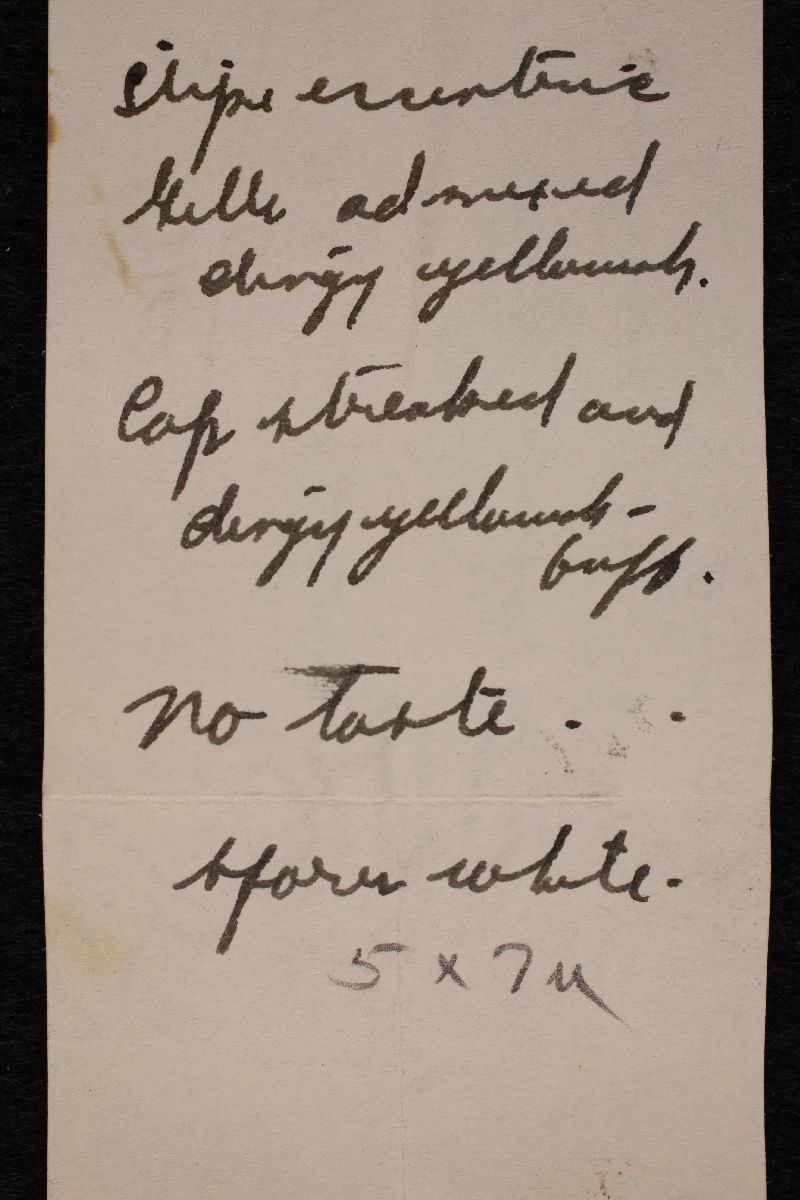 Stipe excentric
Gills adnexed
dingy yellowish.
Cap streaked and
dingy yellowish-
buff.
No taste.
spores white.
5 x 7 µ